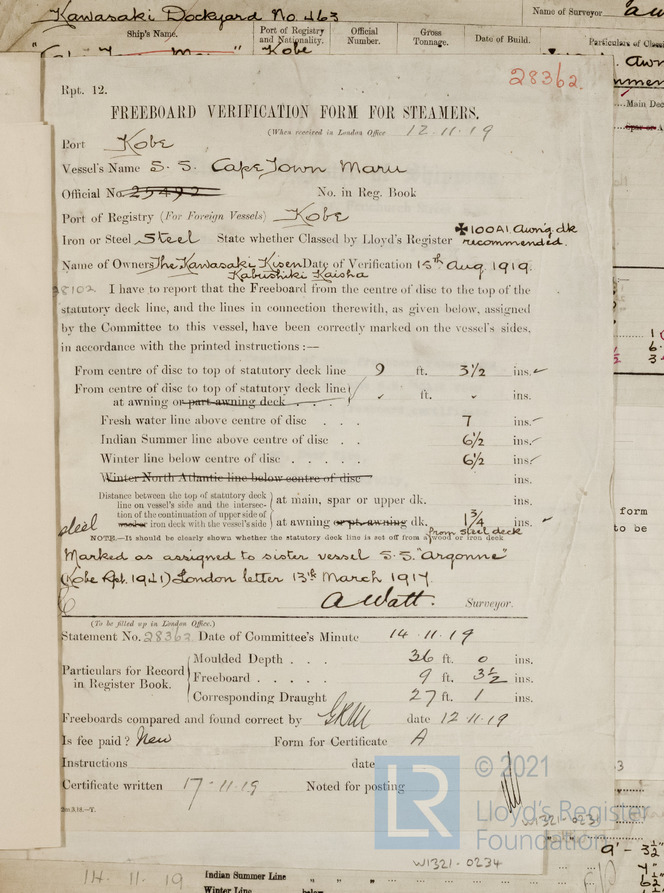 Kawasaki Dockyard No. 463
Name of Surveyor
Ship's Name.
Port of Registry and Nationality.
Official Number.
Gross Tonnage.
Date of Build.
Particulars of Classi
Kobe
Rpt. 12.
28362.
FREEBOARD VERIFICATION FORM FOR STEAMERS.
(When received in London Office 12.11.19
Port Kobe
Vessel's Name S. S. Cape Town Maru
Official No. 25492 No. in Reg. Book
Port of Registry (For Foreign Vessels) Kobe
Iron or Steel Steel State whether Classed by Lloyd's Register ✠100A1. Awn'g dk recommended.
Name of Owners The Kawasaki Kisen Kabushiki Kaisha Date of Verification 15th Aug. 1919.
28102 I have to report that the Freeboard from the centre of disc to the top of the
statutory deck line, and the lines in connection therewith, as given below, assigned
by the Committee to this vessel, have been correctly marked on the vessel's sides,
in accordance with the printed instructions :—
From centre of disc to top of statutory deck line 9 ft. 3½ ins.
From centre of disc to top of statutory deck line
at awning or part awning deck . . . . ft. ins.
Fresh water line above centre of disc . . . 7 ins.
Indian Summer line above centre of disc . . 6½ ins.
Winter line below centre of disc . . . . . 6½ ins.
Winter North Atlantic line below centre of disc ins.
Distance between the top of statutory deck
line on vessel's side and the intersec-
tion of the continuation of upper side of
iron deck with the vessel's side
at main, spar or upper dk. ins.
at awning or pt. awning dk. 1¾ ins.
steel
from steel deck
NOTE.—It should be clearly shown whether the statutory deck line is set off from a wood or iron deck.
Marked as assigned to sister vessel S.S. "Argonne"
(Kobe Rpt. 1941) London letter 13th March 1917.
A Watt. Surveyor.
(To be filled up in London Office.)
Statement No. 28362 Date of Committee's Minute 14.11.19
Particulars for Record in Register Book.
Moulded Depth . . . 36 ft. 0 ins.
Freeboard . . . . . 9 ft. 3½ ins.
Corresponding Draught 27 ft. 1 ins.
Freeboards compared and found correct by date 12.11.19
Is fee paid? New Form for Certificate A
Instructions date
Certificate written 17.11.19 Noted for posting
LR
© 2021
Lloyd's Register
Foundation
W1321-0231
W1321-0234
9' - 3½"
14.11.19
Indian Summer Line
Winter Line below
Main Dec
form
to be